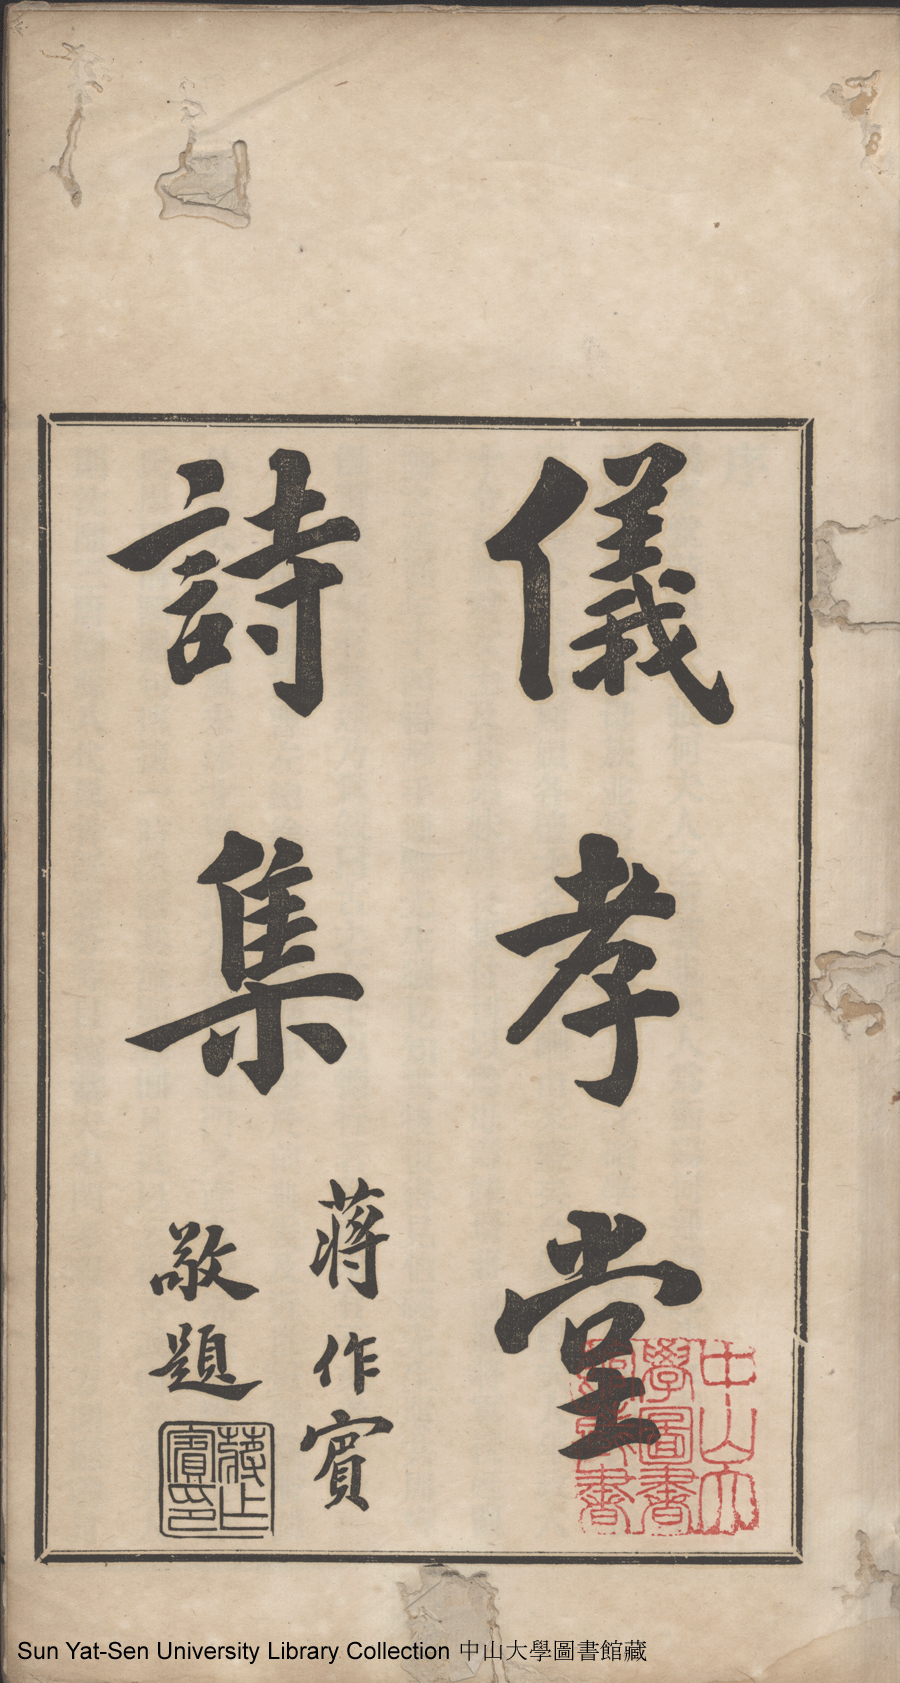 儀孝堂
詩集
蔣作賓
敬題
蔣作
賓印
中山大
學圖書
館藏書
Sun Yat-Sen University Library Collection 中山大學圖書館藏